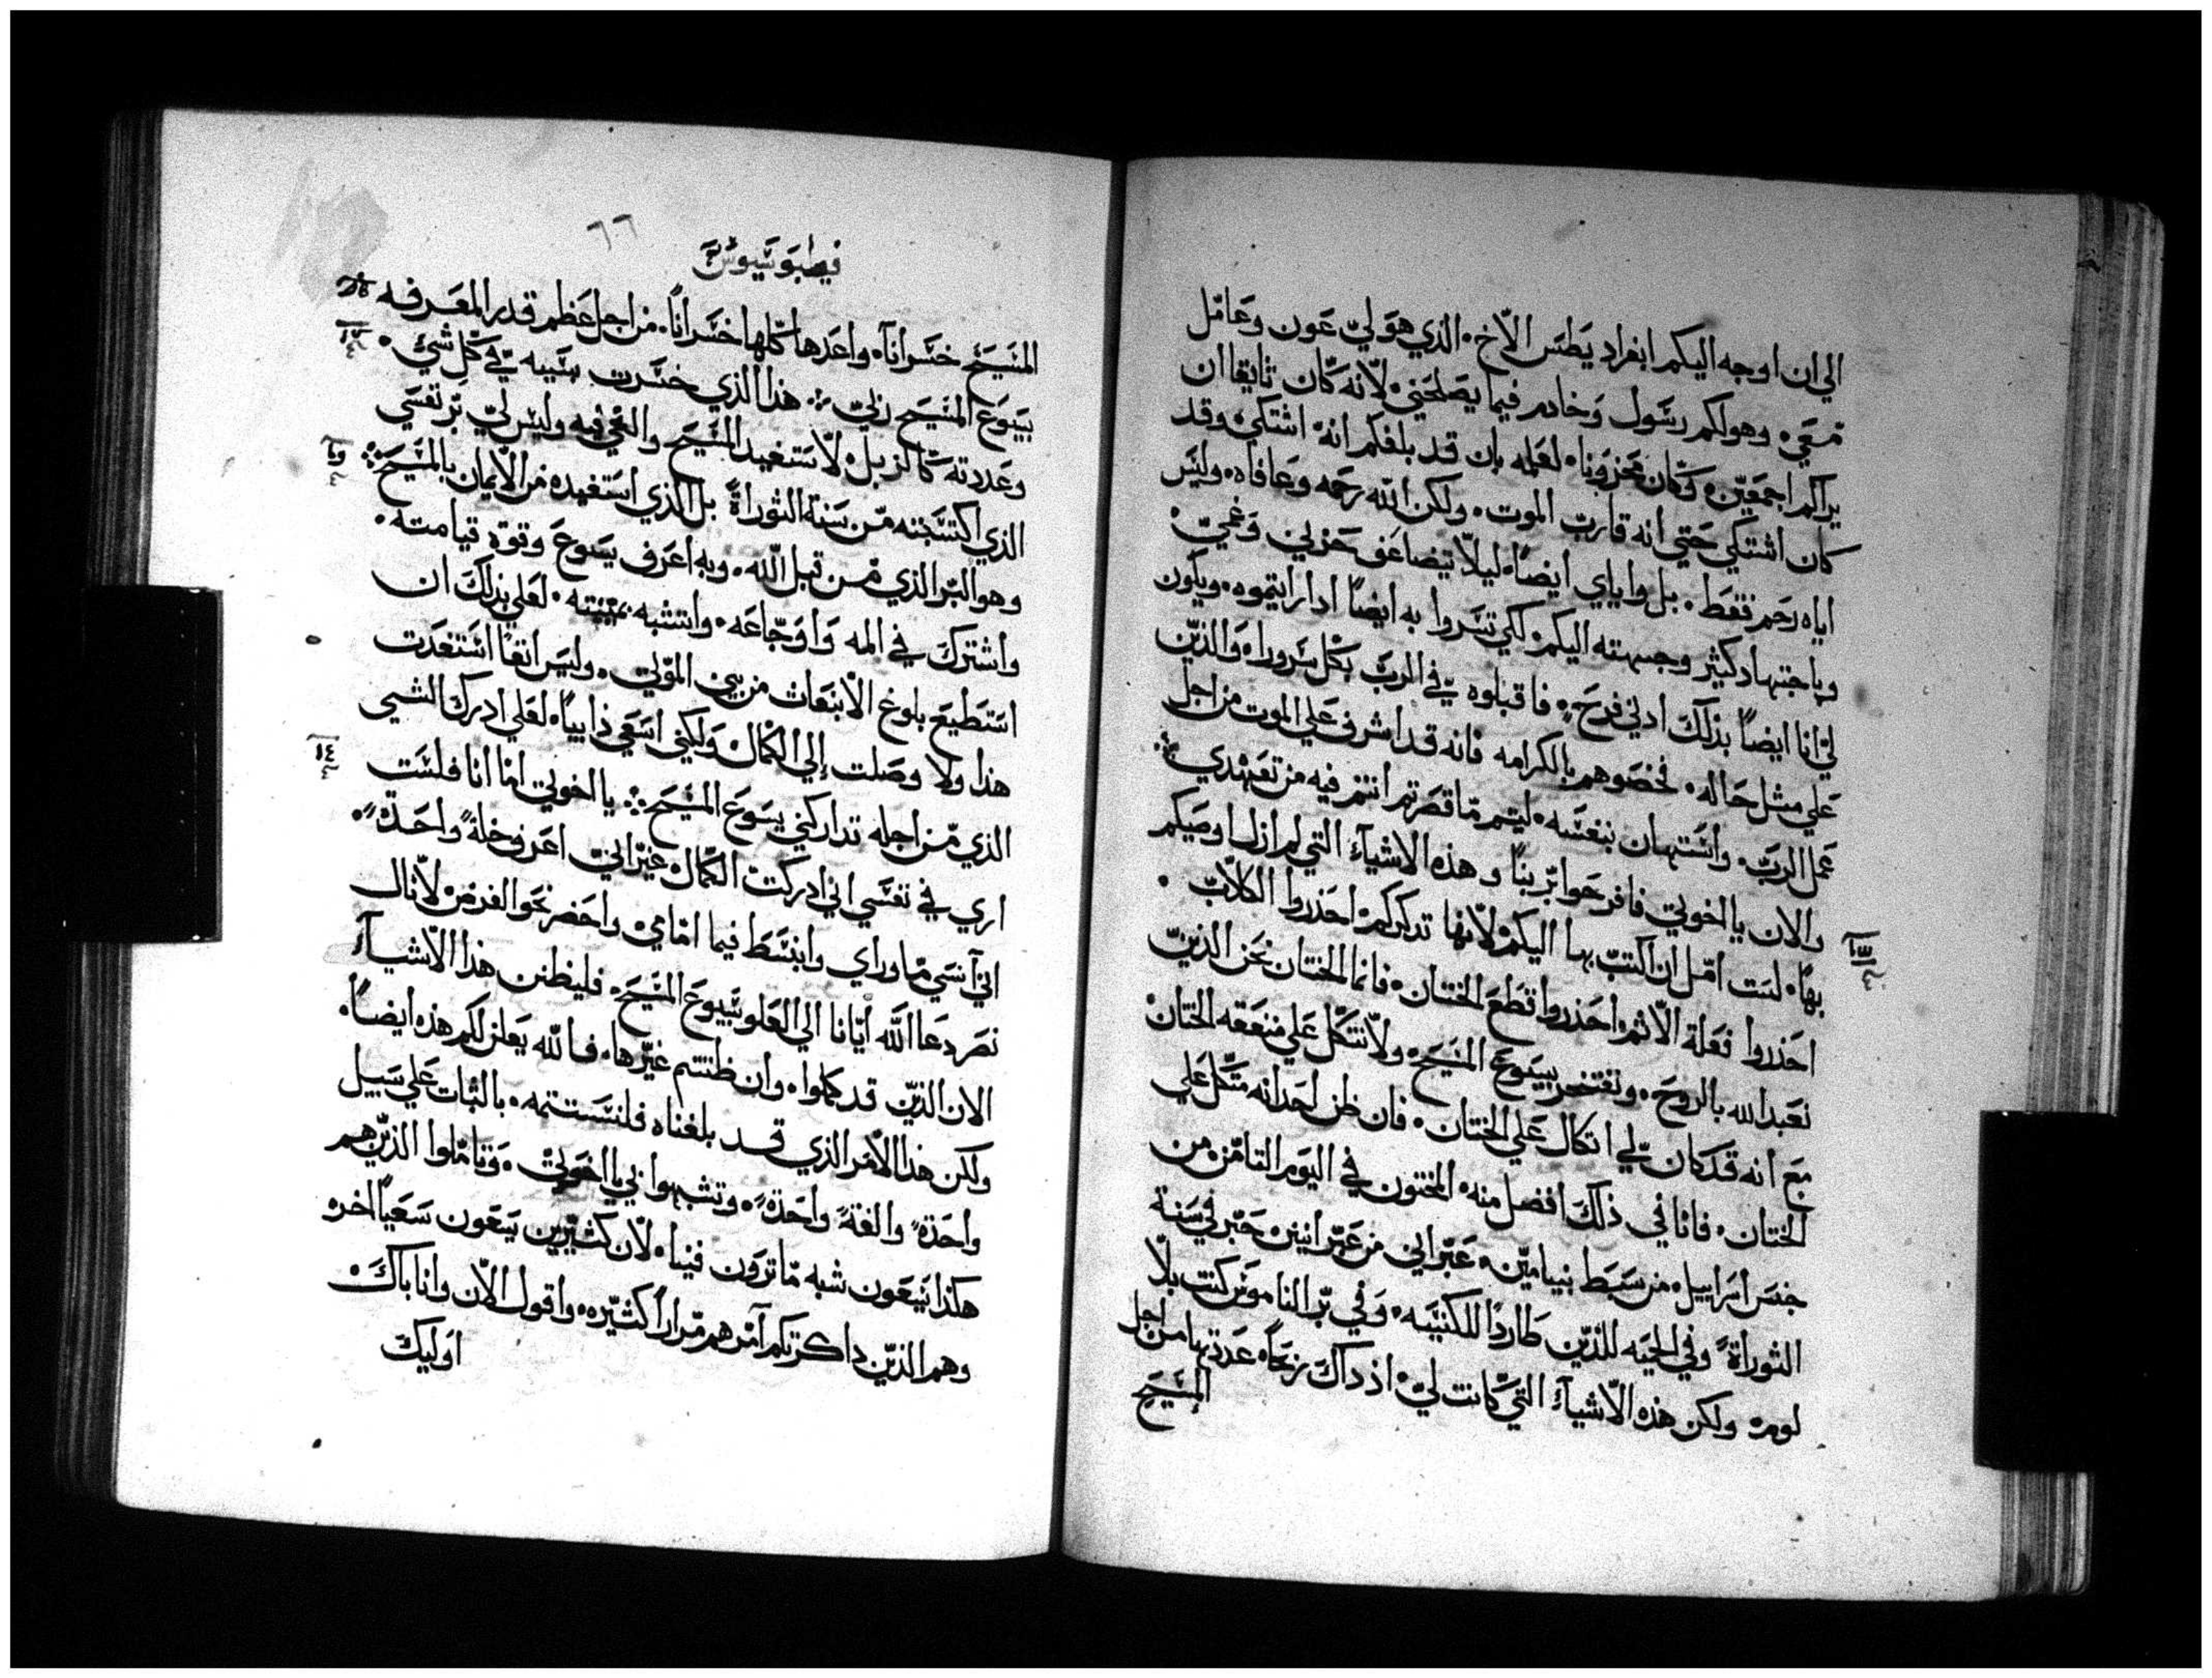 الي ان اوجه اليكم ابفراد يطس الاخ. الذي هو لي عون وعامل
معي. وهو لكم رسول وخادم فيما يصلحني لانه كان تايقا ان
يراكم اجمعين. وكان محزونا. لعلمه بان قد بلغكم انه اشتكي. وقد
كان اشتكي حتي انه قارب الموت. ولكن الله رحمه وعافاه. وليس
اياه رحم فقط. بل واياي ايضا. ليلا يتضاعف حزني وغمي.
وباجتهاد كثير وجهته اليكم. لكي تسروا به ايضا ادا رايتموه. ويكون
لي انا ايضا بذلك ادني فرح. فاقبلوه في الرب بكل سرورا. والذين
علي مثل حاله. فخصوهم بالكرامه فانه قد اشرف علي الموت من اجل
عمل الرب. واستهان بنفسه. ليتم ما قصرتم انتم فيه من تعهدي
والان يا اخوتي فافرحوا بربنا وهذه الاشيآء التي لم ازل اوصيكم
بها. لست امل ان اكتب بها اليكم. لانها تدكركم. احذروا الكلاب.
احذروا فعلة الاثم. احذروا قطع الختان. فانما الختان نحن الذين
نعبد الله بالروح. ونفتخر بيسوع المسيح. ولا نتكل علي منفعه الختان
مع انه قد كان لي اتكال علي الختان. فان ظن احد انه متكل علي
الختان. فانا في ذلك افضل منه. المختون في اليوم الثامن. من
جنس اسراييل. من سبط بنيامين. عبراني من عبرانيين. حبر في سنة
الثوراة وفي الحيه للذين طاردا للكنيسه. وفي بر الناموس كنت بلا
لوم. ولكن هذه الاشيآء التي كانت لي اذ داك ربحا. عددتها من اجل
المسيح
٦٦
المسيح خسرانا. واعدها كلها خسرانا. من اجل عظم قدر المعرفه
بيسوع المسيح ربي. هذا الذي خسرت بسببه في كل شي.
وعددته كالزبل. لاستفيد المسيح والقي فيه وليس لي بر نفسي
الذي اكتسبته من سنة الثوراة بل الذي استفيده من الايمان بالمسيح
وهو البر الذي من قبل الله. وبه اعرف يسوع وقوة قيامته.
واشترك في المه واوجاعه. واتشبه بميتته. لعلي بذلك ان
استطيع بلوغ الانبعاث من بين الموتي. وليس انفا استفدت
هذا ولا وصلت الي الكمال ولكني اسعي دايبا. لعلي ادرك الشي
الذي من اجله تداركني يسوع المسيح. يا اخوتي اما انا فلست
اري في نفسي اني ادركت الكمال. غير اني اعرف خلة واحدة.
اني آنسي ما وراي وابنسط فيما امامي. واحضر نحو الغرض لانال
نصر دعا الله ايانا الي العلو بيسوع المسيح. فليظنن هذا الاشيآء
الان الذين قد كملوا. وان ظننتم غيرها. فالله يعلن لكم هذه ايضا.
ولكن هذا الامر الذي قد بلغناه فلنستتمه. بالثبات علي سبيل
واحدة والفة واحدة. وتشبهوا بي يا اخوتي. وتاملوا الذين هم
هكذا يسعون شبه ما ترون فينا. لان كثيرين يسعون سعيا اخر.
وهم الذين داكرتكم آمرهم مرارا كثيره. واقول الان وانا باك.
اوليك